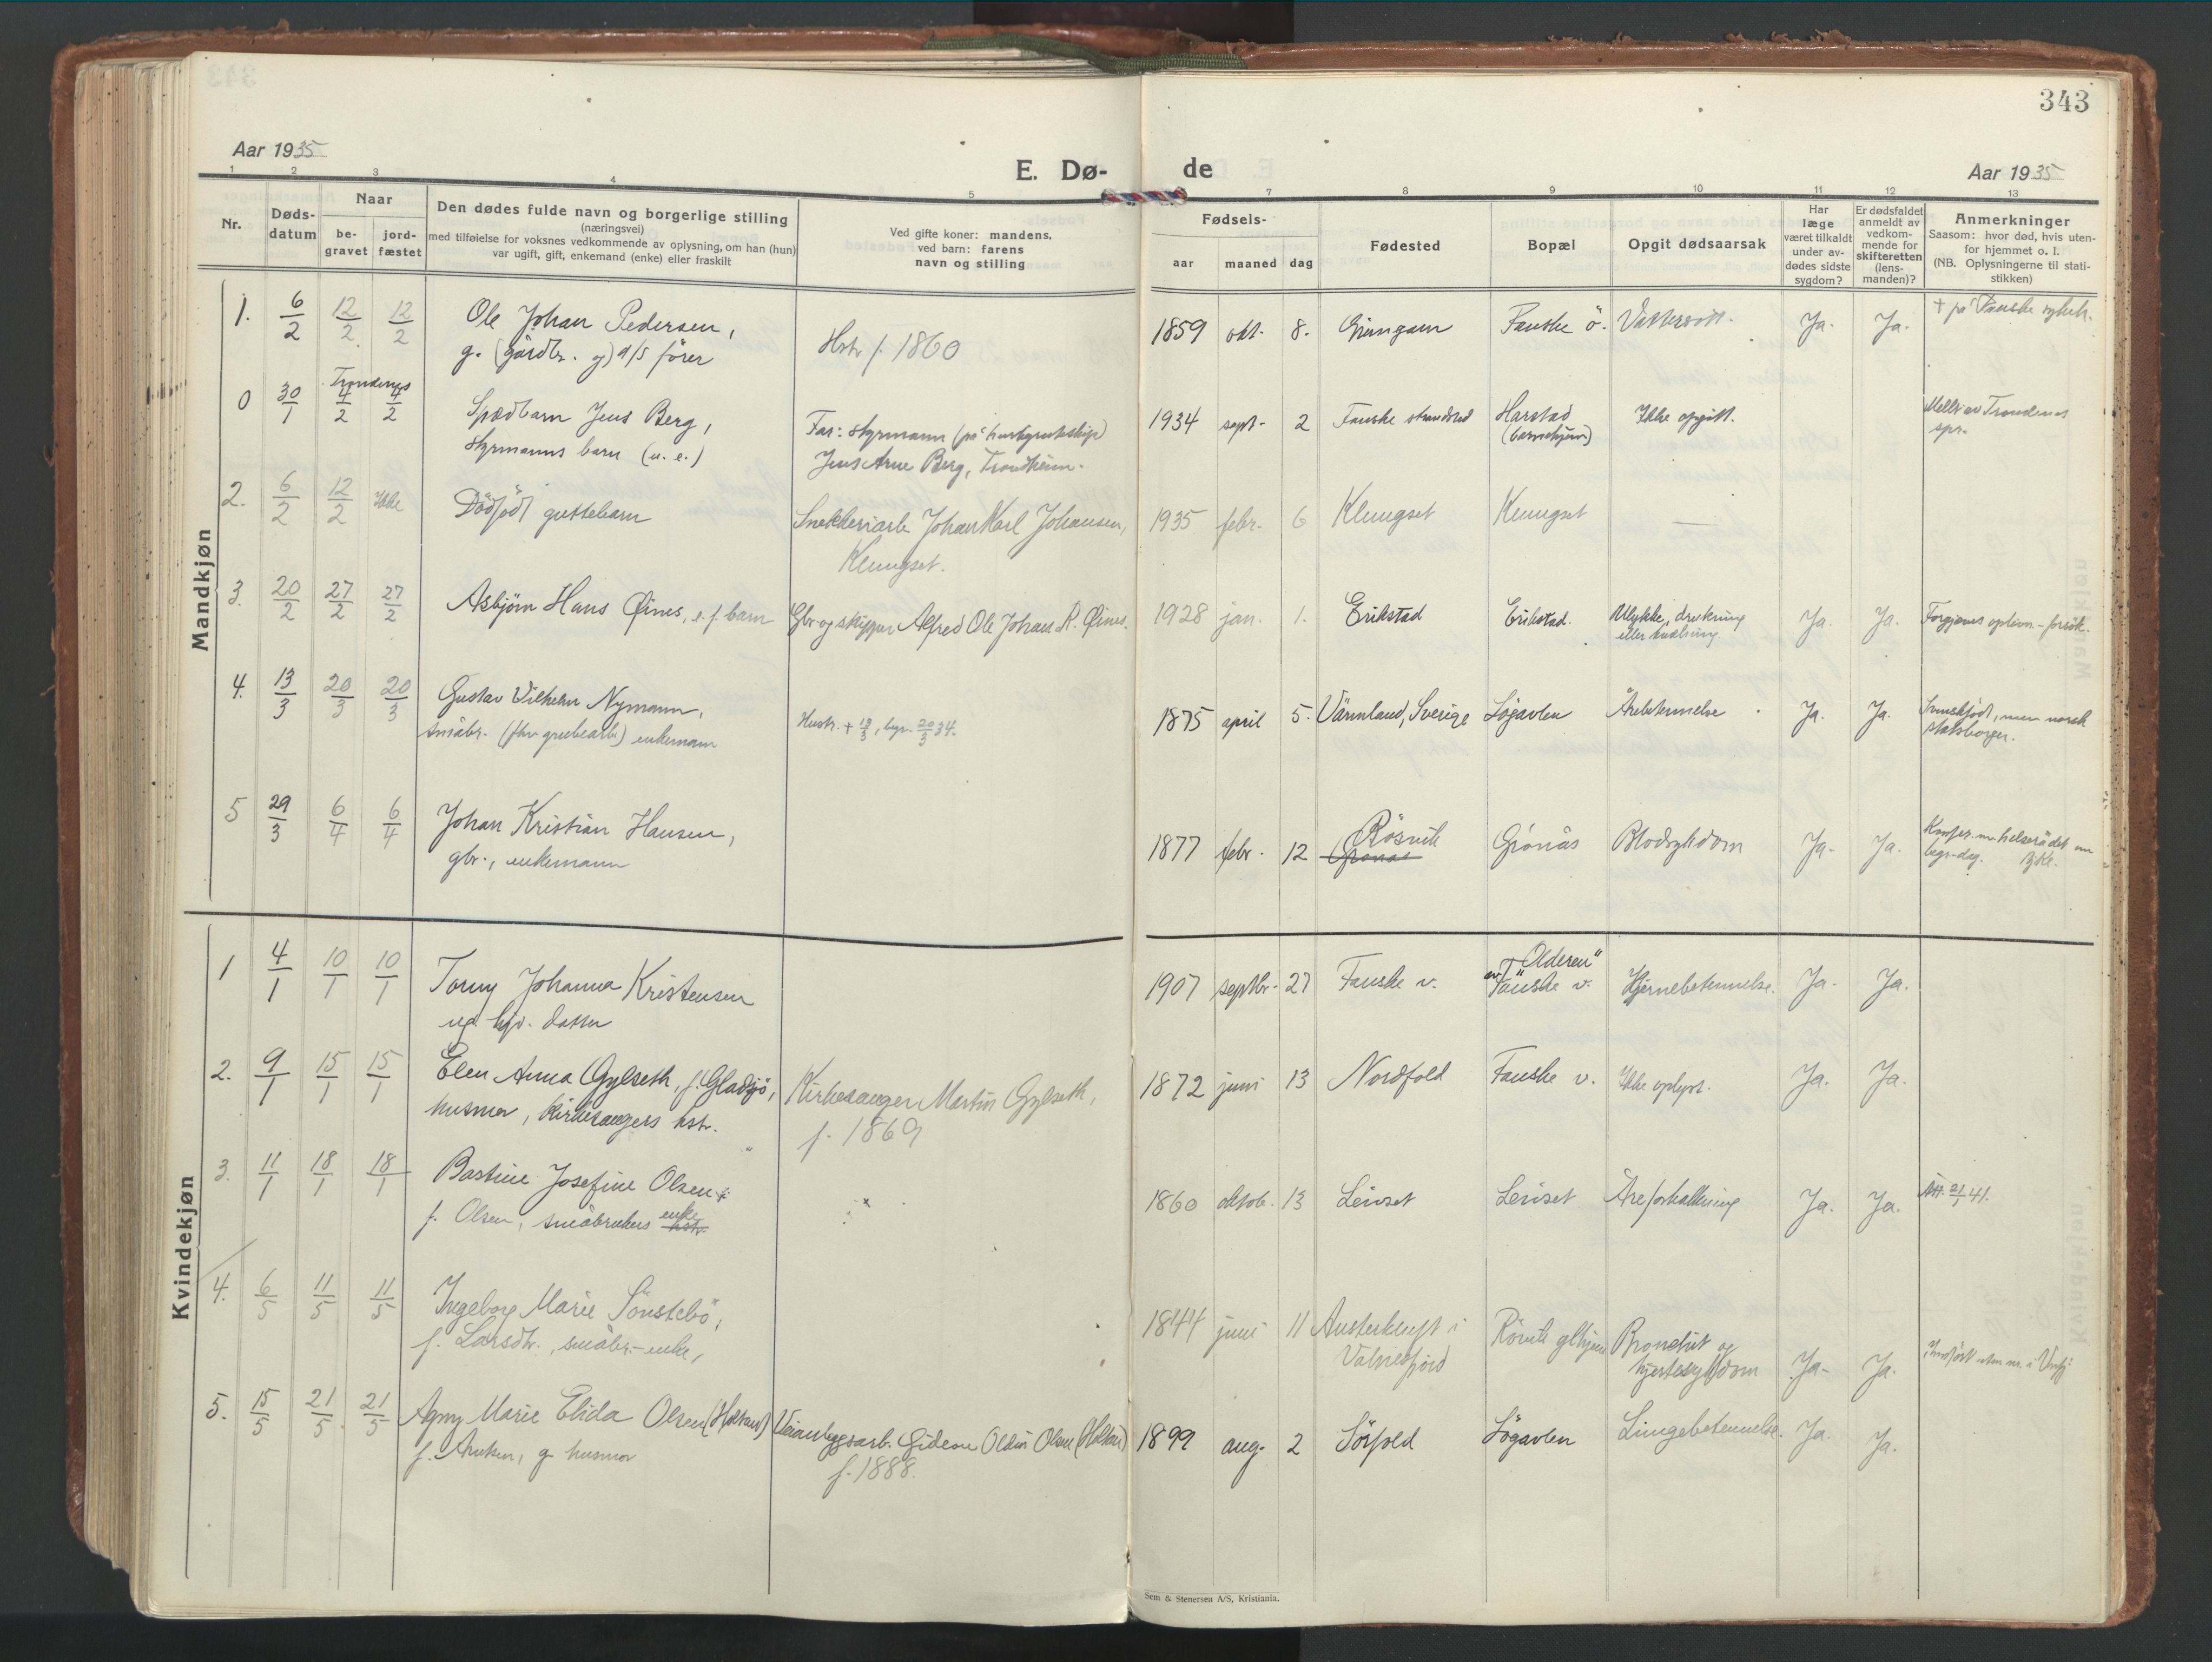 343
Aar 1935
E. Dø-
de
Aar 1935
1 2 3 4 5 7 8 9 10 11 12 13
Nr.
Døds-
datum
Naar
be-
gravet
jord-
fæstet
Den dødes fulde navn og borgerlige stilling
(næringsvei)
med tilføielse for voksnes vedkommende av oplysning, om han (hun)
var ugift, gift, enkemand (enke) eller fraskilt
Ved gifte koner: mandens,
ved barn: farens
navn og stilling
Fødsels-
aar maaned dag
Fødested
Bopæl
Opgit dødsaarsak
Har
læge
været tilkaldt
under av-
dødes sidste
sygdom?
Er dødsfaldet
anmeldt av
vedkom-
mende for
skifteretten
(lens-
manden)?
Anmerkninger
Saasom: hvor død, hvis uten-
for hjemmet o. l.
(NB. Oplysningerne til stati-
stikken)
Mandkjøn
1. 6/2 12/2 12/2 Ole Johan Pedersen,
g. (gårdbr. g) fører
Hstr. f. 1860
1859 okt. 8. Fauske ö. Ja. Ja. + på Fauske sykeh.
Trondenes
0 30/1 4/2 4/2 Spedbarn Jens Berg,
styrmanns barn (u. e.)
Far: styrmann
Jens Arne Berg, Trondheim.
1934 sept. 2 Fauske strandsted Harstad
(barnehjem)
Ikke opgitt.
Trondenes
spr.
2. 6/2 12/2 Ikke Dödfödt guttebarn
Snekkeriarb. Johan Karl Johansen,
Klungset.
1935 febr. 6 Klungset Klungset —
3. 20/2 27/2 27/2 Asbjörn Hans Øines, e. f. barn
Gbr og skipper Alfred Ole Johan R. Øines.
1928 jan. 1. Erikstad Erikstad. Ulykke, drukning
eller kvelning
Ja. Ja. Forgjeves opliv.-forsök.
4. 13/3 20/3 20/3 Gustav Vilhelm Nymann,
småbr. (fhv. grubearb.) enkemann
Hustr. + 19/3, begr. 20/3 34.
1875 april 5. Värmland, Sverige Lögavlen Årebetennelse Ja. Ja. Svenskfödt, men norsk
statsborger.
5 29/3 6/4 6/4 Johan Kristian Hansen,
gbr., enkemann
1877 febr. 12 Rösvik
Grönås
Grönås Blodsykdom Ja. Ja. Konfer. m. helserådet om
begr.-dag.
Kvindekjøn
1 4/1 10/1 10/1 Torny Johanna Kristensen
ug. hjv. datter
1907 septbr. 27 Fauske v. av "Olderen"
Fauske v. Hjernebetennelse. Ja. Ja.
2. 9/1 15/1 15/1 Elen Anna Gylseth, f. Gladsjö,
husmor, kirkesangers hstr.
Kirkesanger Martin Gylseth,
f. 1869
1872 juni 13 Nordfold Fauske v. Ikke oplyst. Ja. Ja.
3. 11/1 18/1 18/1 Bastine Josefine Olsen
f. Olsen, småbrukers enke
hstr.
1860 oktob. 13 Leivset Leivset Åreforkalkning Ja. Ja. Att. 21/1 41.
4. 6/5 11/5 11/5 Ingeborg Marie Sönstebö,
f. Larsdtr., småbr.-enke,
1844 juni 11 Austerkluft i
Valnesfjord
Rösvik glhjem Bronchit og
hjertesykdom
Ja- Ja. Innfört uten nr. i Vnfj.
5. 15/5 21/5 21/5 Agny Marie Elida Olsen (Holstad)
f. Anker, g. husmor
Veianleggsarb. Gideon Oldin Olsen (Holstad)
f. 1888.
1899 aug. 2 Sörfold Lögavlen Lungebetennelse. Ja. Ja.
Sem & Stenersen A/S, Kristiania.